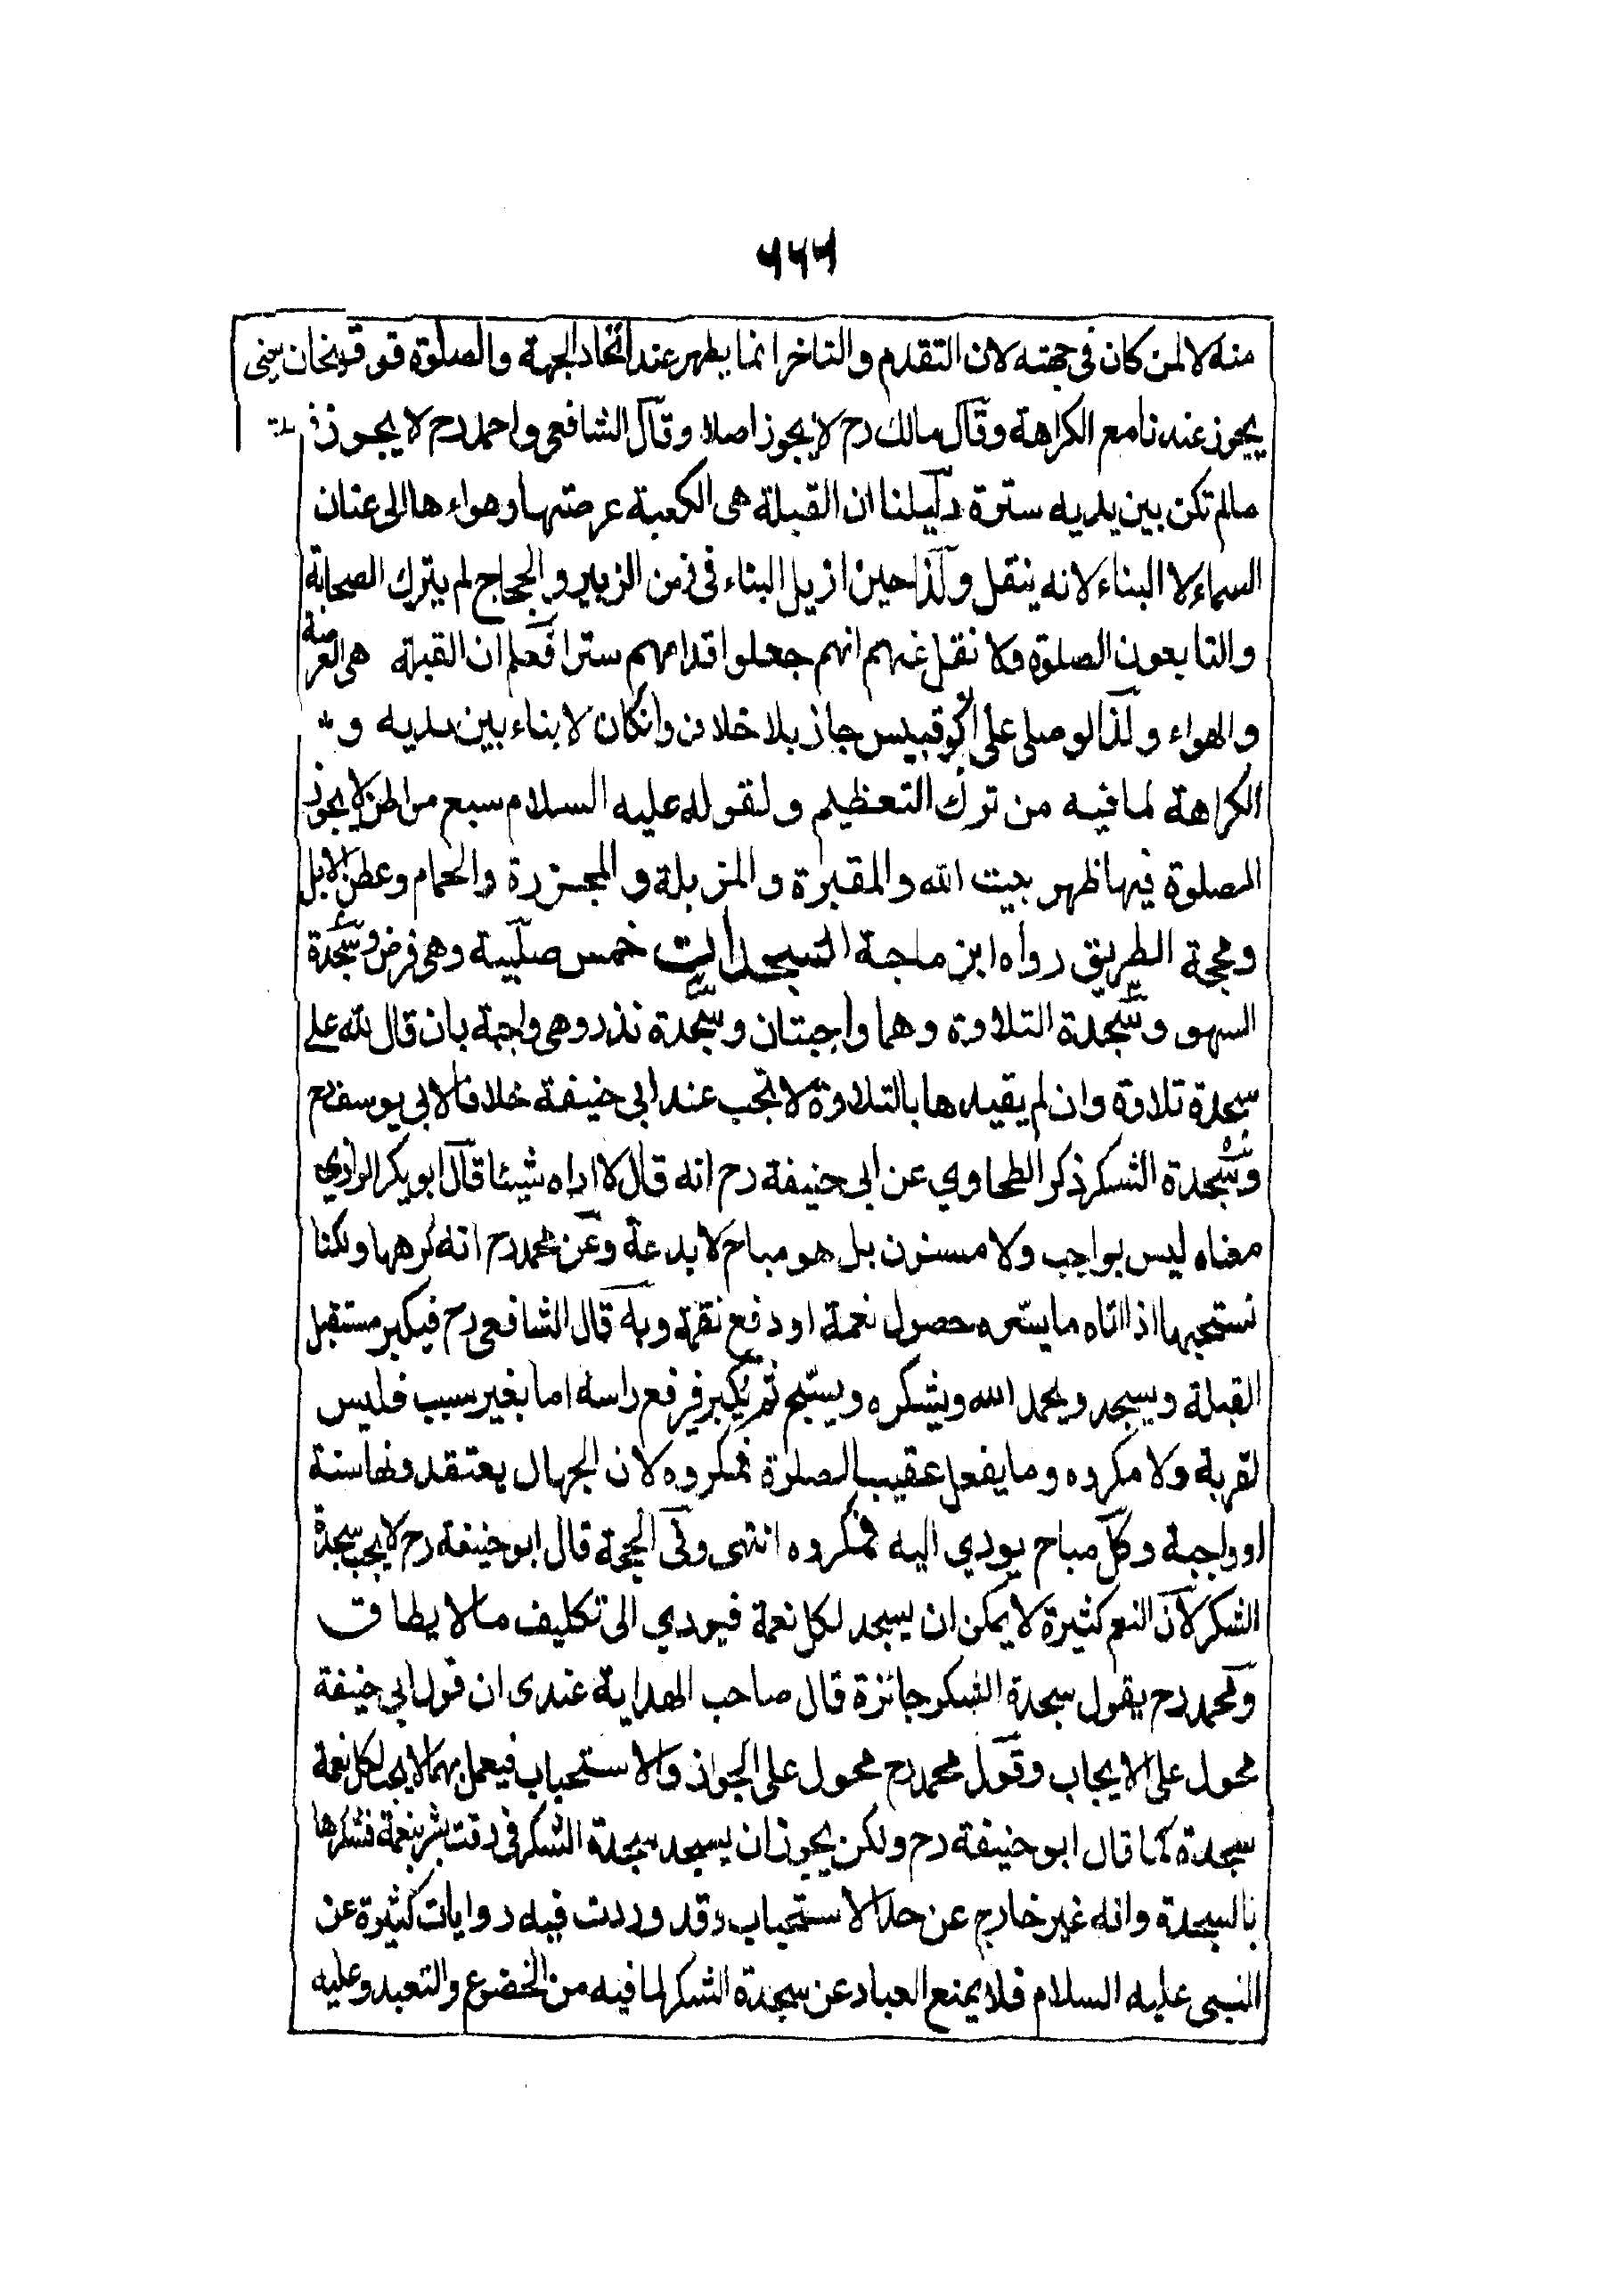 ٢٢٢
منه لا لمن كان فى جهته لان التقدم والتاخر انما يظهر عند اتحاد الجهة والصلوة فوق
يجوز عندنا مع الكراهة وقال مالك رح لا يجوز اصلا وقال الشافعى واحمد رح لا يجوز
مالم تكن بين يديه سترة دليلنا ان القبلة هى الكعبة عرصتها وهواءها الى عنان
السماء لا البناء لانه ينقل ولذا حين ازيل البناء فى زمن الزبير والحجاج لم يترك الصحابة
والتابعون الصلوة ولا نقل عنهم انهم جعلوا قدامهم سترا فعلم ان القبلة هى العرصة
والهواء ولذا لو صلى على ابو قبيس جاز بلا خلاف وانكان لا بناء بين يديه و
الكراهة لما فيه من ترك التعظيم ولقوله عليه السلام سبع مواطن لا يجوز
الصلوة فيها ظهر بيت الله والمقبرة والمزبلة والمجزرة والحمام وعطن الابل
ومحجة الطريق رواه ابن ماجة السجدات خمس صلبية وهى فرض وسجدة
السهو وسجدة التلاوة وهما واجبتان وسجدة نذر وهى واجبة بان قال لله على
سجدة تلاوة وان لم يقيدها بالتلاوة لا تجب عند ابى حنيفة خلافا لابى يوسف رح
وسجدة الشكر ذكر الطحاوي عن ابى حنيفة رح انه قال لا اراه شيئا قال ابو بكر الرازي
معناه ليس بواجب ولا مسنون بل هو مباح لا بدعة وعن محمد رح انه كرهها ولكنا
نستحبها اذا اتاه ما يسره حصول نعمة او دفع نقمة وبه قال الشافعى رح فيكبر مستقبل
القبلة ويسجد ويحمد الله ويشكره ويسبح ثم يكبر فيرفع راسه اما بغير سبب فليس
لقربة ولا مكروه وما يفعل عقيب الصلوة فمكروه لان الجهال يعتقدونها سنة
او واجبة وكل مباح يودي اليه فمكروه انتهى وفى الحجة قال ابو حنيفة رح لا يجب سجدة
الشكر لان النعم كثيرة لا يمكن ان يسجد لكل نعمة فيودي الى تكليف مالا يطاق
ومحمد رح يقول سجدة الشكر جائزة قال صاحب الهداية عندى ان قول ابى حنيفة
محمول على الايجاب وقول محمد رح محمول على الجواز والاستحباب فيعمل بهما لا يجب لكل نعمة
سجدة كما قال ابو حنيفة رح ولكن يجوز ان يسجد سجدة الشكر فى وقت بشر بنعمة فشكرها
بالسجدة وانه غير خارج عن حد الاستحباب وقد وردت فيه روايات كثيرة عن
النبى عليه السلام فلا يمنع العباد عن سجدة الشكر لما فيه من الخضوع والتعبد وعليه